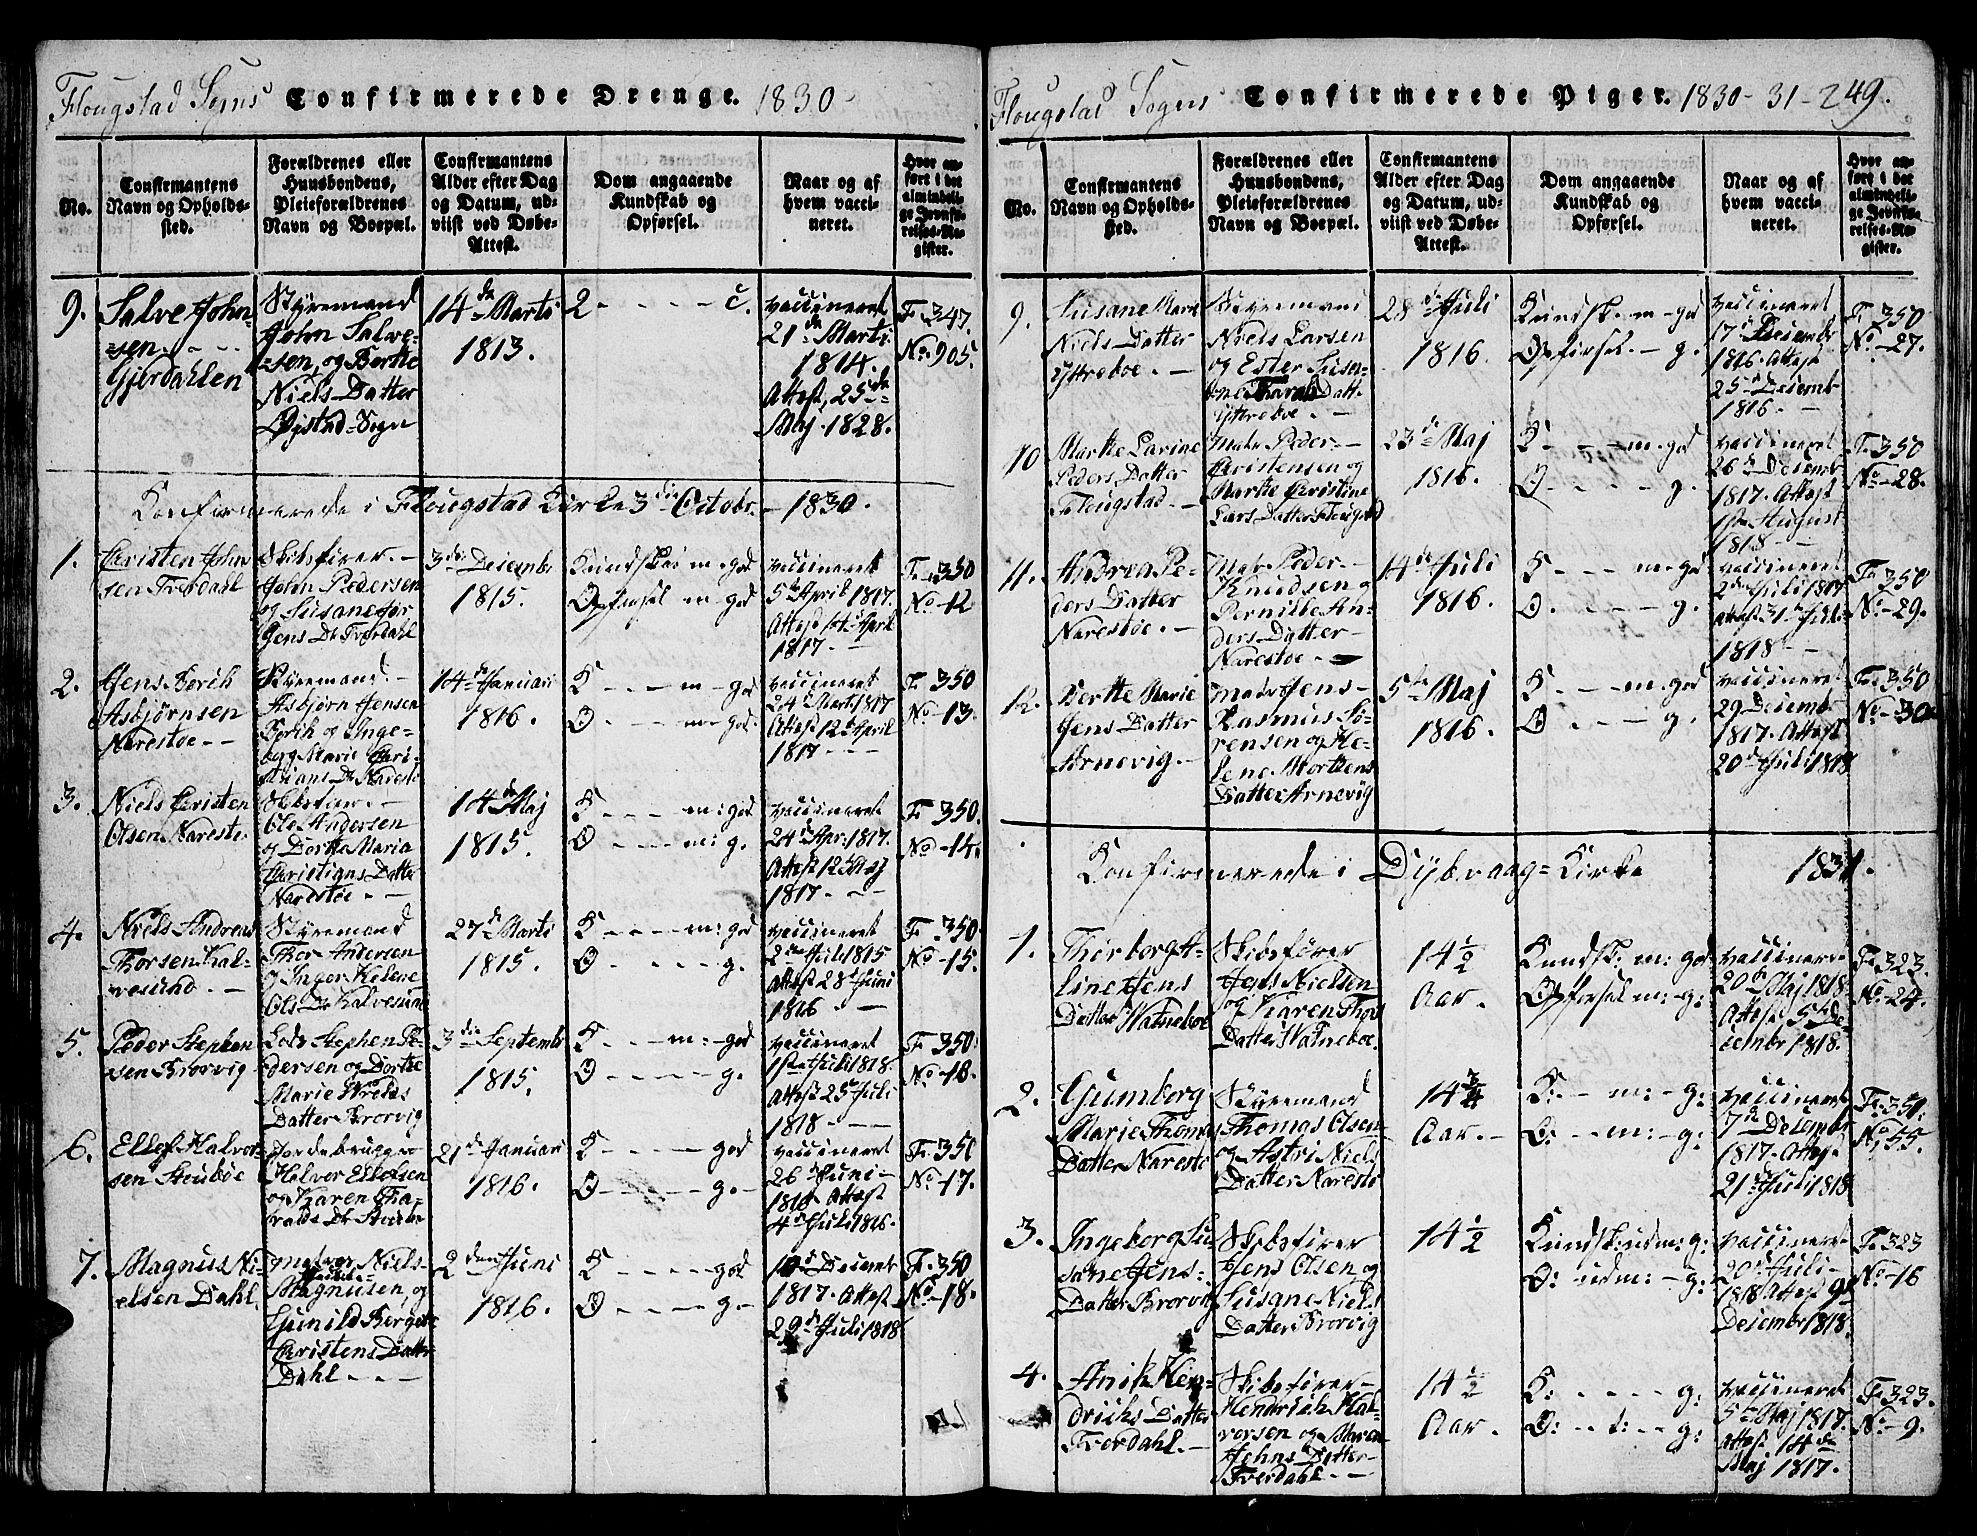 Flougstad Sogns Confirmerede Drenge. 1830
No.
Confirmantens
Navn og Opholds-
sted.
Forældrenes eller
Huusbondens,
Pleieforældrenes
Navn og Boepæl.
Confirmantens
Alder efter Dag
og Datum, ud-
viist ved Døbe-
Attest.
Dom angaaende
Kundskab og
Opførsel.
Naar og af
hvem vacci-
neret.
Hvor an-
ført i det
almindeli-
ge Jevnfø-
relses-Re-
gister.
9.
Salve John-
-sen
Gjerdahlen
Styremand
John Salve-
-sen, og Berthe
Niels-Datter
Øystad-Sogn
14de Marti
1813.
2 - - - - - c.
vaccineret
21de Marti
1814.
Attest, 25de
Maj 1828.
F. 347.
No. 905.
Konfirmerede i Flougstad Kirke 3die Octobr. - 1830.
1.
Christen John
sen Tverdahl
Skibsfører. -
John Pedersen
og Susane Jør
gens Dr Tverdahl
3die Decembr
1815.
Kundskab m - god
Opførsel m - god
vaccineret
5te April 1817.
Attest 1ste April
1817. -
F. 350
No - 12.
2.
Jens Borch
Asbjørnsen
Narestøe - -
Styremand -
Asbjørn Jensen
Borch og Inge-
borg Marie Chri-
stians Dr Narestø
14de Januari
1816.
K - - - m - god
O - - - m - god.
vaccineret
24 Marti 1817
Attest 12te April
1817 - - -
F. 350
No - 13.
3.
Niels Christen
Olsen Narestø
Skibsfører. -
Ole Andersen
og Dorthe Maria
Christians Datter
Narestøe - -
14de Maj
1815.
K - - - m: god
O - - - m: g.
vaccineret
24de Apr: 1817.
Attest 12 Maj
1817. - -
F. 350.
No - 14.
4.
Niels Andreas
Thorsen Kal-
vesund. -
Styremand
Thor Andersen
og Inger Helene
Ols Dr Kalvesund
27de Marti
1815.
K - - - m: god
O - - - - g.
vaccineret
2den Juli 1815
Attest 28de Juni
1816 - -
F. 350.
No - 15.
5.
Peder Stephen
sen Brorvig
Lods Stephen Pe-
dersen og Dorthe
Marie Nields
Datter Brorvig
3die Septembr
1815.
K - - - m: - god
O - - - - g.
vaccineret
1ste Juli 1818.
Attest 25de Juli
1818 - - -
F. 350.
No - 16.
6.
Ellef Halvor-
sen Steubøe
Jordebruger
Halvor Ellefsen
og Karen Tha-
ralds Dr Steubø
21de Januari
1816.
K - - - - god
O - - - - g. -
vaccineret
26de Juni -
1818 Attest
4de Juli 1816.
F. 350
No - 17.
7.
Magnus Ni-
elsen Dahl
Matros Niels
Magnusen, og
Gunild Bergete
Christens Datter
Dahl - - -
2den Juni
1816.
K - - - - god
O - - - - g. -
10de Decembr
1817. Attest
29de Juli 1818
F. 350
No - 18.
Flougstad Sogns Confirmerede Piger. 1830 - 31 - 249.
No.
Confirmantens
Navn og Opholds-
sted.
Forældrenes eller
Huusbondens,
Pleieforældrenes
Navn og Boepæl.
Confirmantens
Alder efter Dag
og Datum, ud-
viist ved Døbe-
Attest.
Dom angaaende
Kundskab og
Opførsel.
Naar og af
hvem vacci-
neret.
Hvor an-
ført i det
almindeli-
ge Jevnfø-
relses-Re-
gister.
9.
Susane Marie
Niels Datter
Yttreboe. -
Styremand
Niels Larsen
og Ester Susan-
ne Tharald Datt.
Yttreboe - -
28de Juli
1816.
Kundsk. - m - god
Opførsel. - g.
vaccineret
17de Decembr
1816. Attest
25de Decemb
1816. -
F. 350
No - 27.
10
Marthe Larine
Peders Datter
Flougstad. -
Matr. Peder -
Christensen og
Marthe Christine
Lars Datter Flougstad
23de Maj
1816.
K - - - m - god
O - - - - g.
vaccineret
26de Decembr
1817. Attest
1ste August
1818 -
F. 350
No - 28.
11.
Andrea Pe-
ders Datter
Narestøe. -
Matr. Peder -
Knudsen og
Pernille An-
ders Datter -
Narestøe. -
14de Juli
1816.
K - - - m - god
O. - - - g.
vaccineret
2den Juli 1817
Attest 31te Juli
1818 - -
F. 350
No - 29.
12.
Berthe Marie
Jens Datter
Arnevig. -
Matr. Jens -
Rasmus Sø-
rensen og He-
lene Morthens
Datter Arnevig
5te Maj
1816.
K - - - m. god
O - - - g.
vaccineret
29 Decembr
1817. Attest
20de Juli 1818
F. 350
No - 30.
Konfirmerede i Dybvaag = Kirke 1831.
1.
Thorborg A-
line Jens
Datter Watneboe
Skibsfører
Jens Nielsen
og Karen Thor
Datter Watneboe.
14 1/2
Aar.
Kundsk. m: god
Opførsel m: - g:
vaccineret
20de Maj 1818.
Attest, 5te De-
cembr 1818.
F. 323.
No - 24.
2.
Gumborg
Marie Thomas
Datter Narestø
Styremand
Thomas Olsen
og Astri Niels
Datter Narestø
14 3/4
Aar. -
K: - - m: - g:
O: - - m: - g:
vaccineret
7de Decembr
1817. Attest
21de Juli 1818
F. 351.
No 55.
3.
Ingeborg Su-
sane Jens -
Datter Brorvig
Skibsfører
Jens Olsen og
Susane Niels
Datter Brorvig
14 1/2
Kundsk: udm: g:
O: udm: - g:
vaccineret
20de Juli -
1818 Attest 9de
Decembr 1818.
F. 323
No - 16
4.
Anik Hen-
drichs Datter
Tverdahl. -
Skibsfører -
Hendrich Hal-
vorsen og Maren
Johns Datter -
Tverdahl - -
14 1/2
Aar.
K: - - - - g:
O: - - t: - g:
vaccineret
5te Maj 1817.
Attest. 14de
Maj 1817.
F. 323.
No - 9.